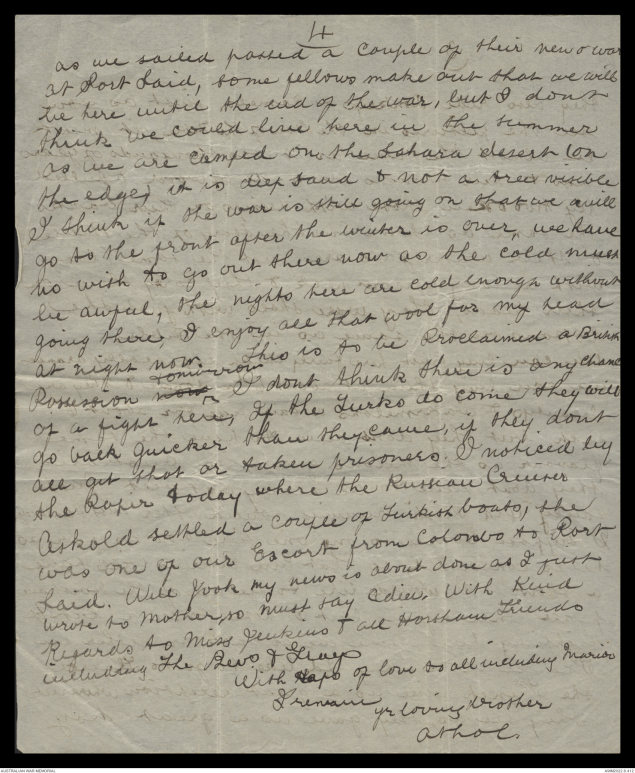 4
as we sailed passed a couple of their new o war
at Port Said, some fellows make out that we will
be here until the end of the war, but I dont
think we could live here in the summer
as we are camped on the Sahara desert (on
the edge) it is deep sand & not a tree visible
I think if the war is still going on that we will
go to the front after the winter is over, we have
no wish to go out there now as the cold must
be awful, the nights here are cold enough without
going there, I enjoy all that wool for my head
at night now. This is to be Proclaimed a British
Possession now tomorrow I dont think there is any chance
of a fight here, If the Turks do come they will
go back quicker than they came, if they dont
all get shot or taken prisoners. I noticed by
the Paper today where the Russian Cruiser
Askold settled a couple of Turkish boats, she
was one of our Escort from Colombo to Port
Said. Well Jook my news is about done as I just
wrote to Mother, so must say Adieu, With Kind
Regards to Miss Jenkins & all Horsham Friends
including The Bevs &
With of love to all including Marion
I remain yr loving brother
Athol.
AUSTRALIAN WAR MEMORIAL